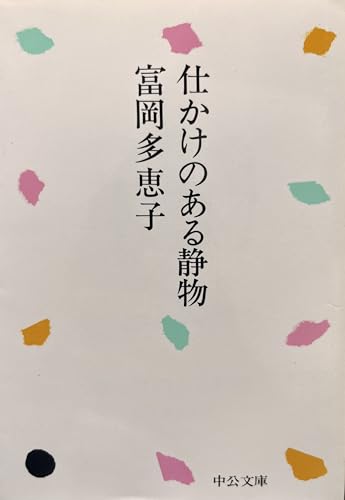 仕かけのある静物
富岡多恵子
中公文庫